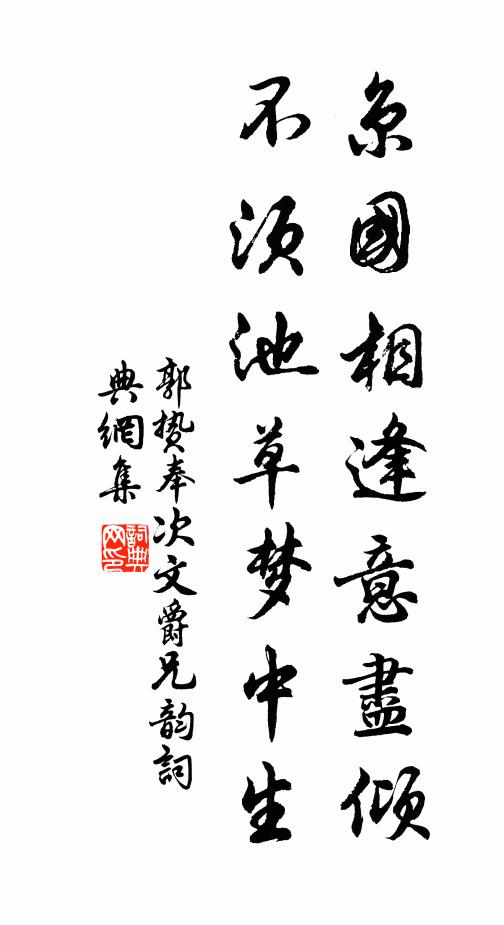 京國相逢意盡傾
不須池草梦中生
郭贽奉次文爵兄韵詞
典網集
詞典
网印